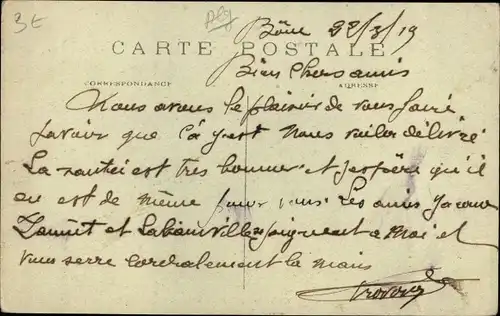 3E
Alg
Bône 22/3/19
CARTE POSTALE
Bien Chers amis
CORRESPONDANCE
ADRESSE
Nous avons le plaisir de vous faire
savoir que Ca y est nous voila délivré
La santée est très bonne et j'espère qu'il
en est de même pour vous. Les amis
et se joignent a Moi et
vous serre cordialement la main